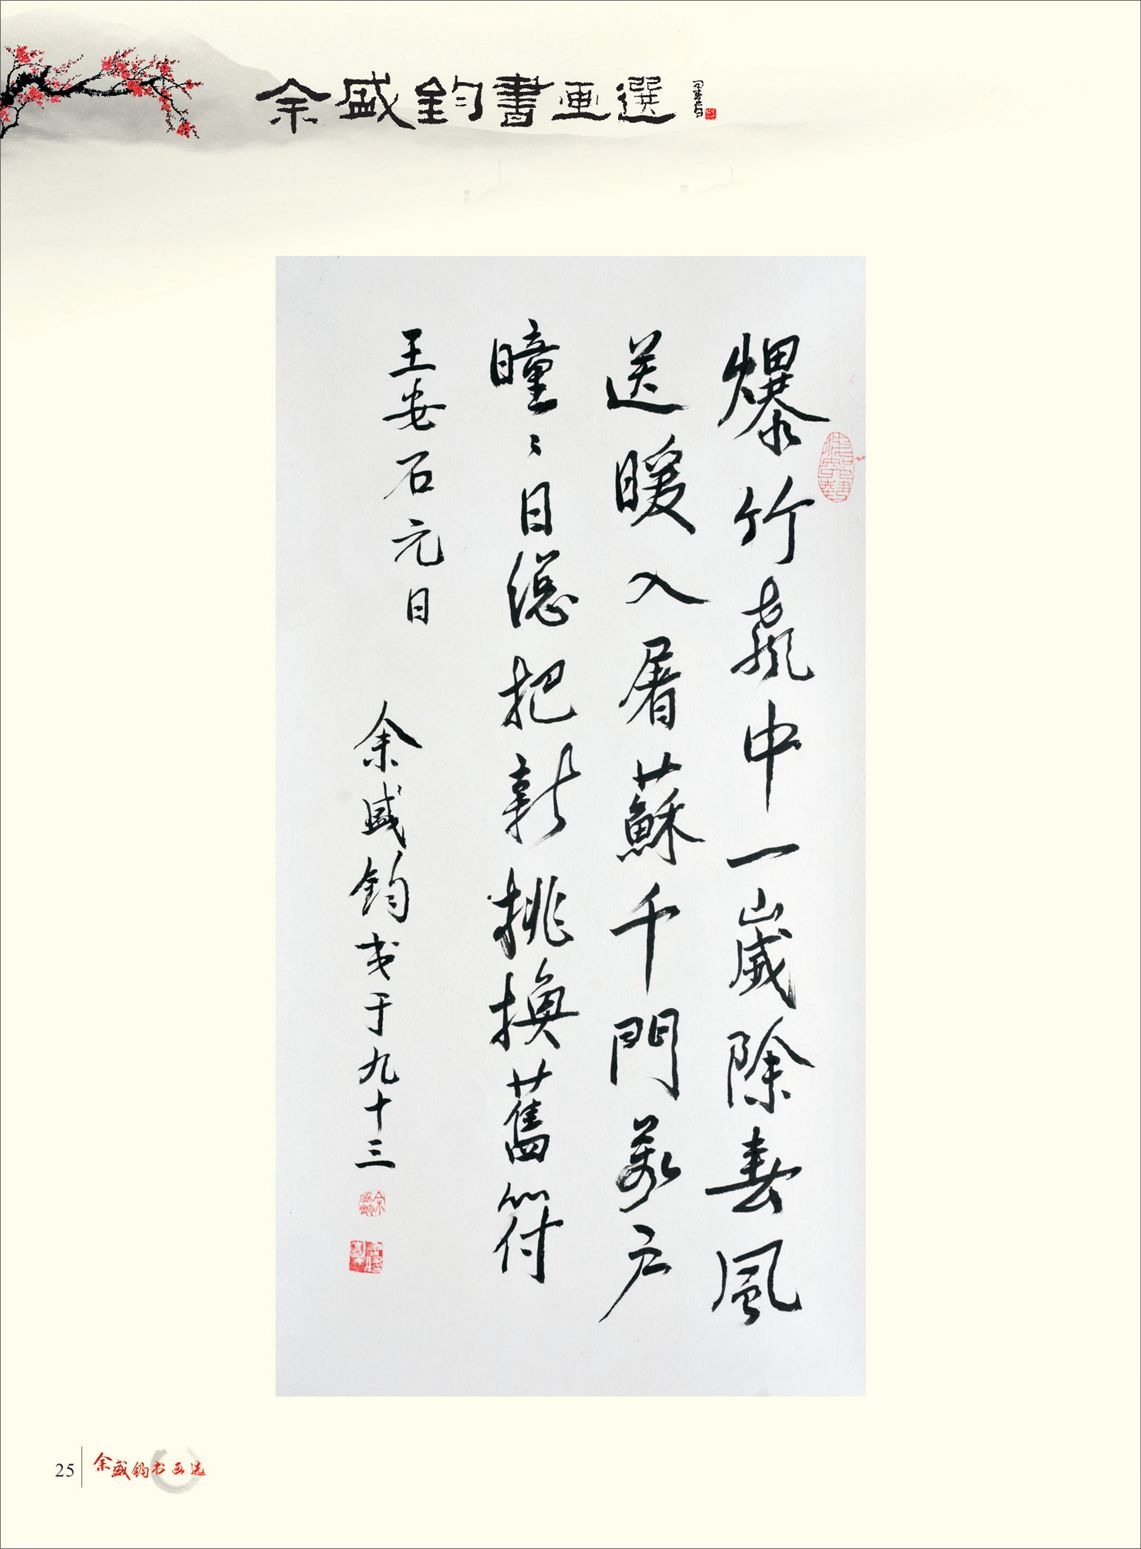 余盛鈞書画選
爆竹聲中一歲除春風
送暖入屠蘇千門萬户
瞳〻日總把新挑換舊符
王安石元日
余盛鈞书于九十三
25
余盛鈞书画选